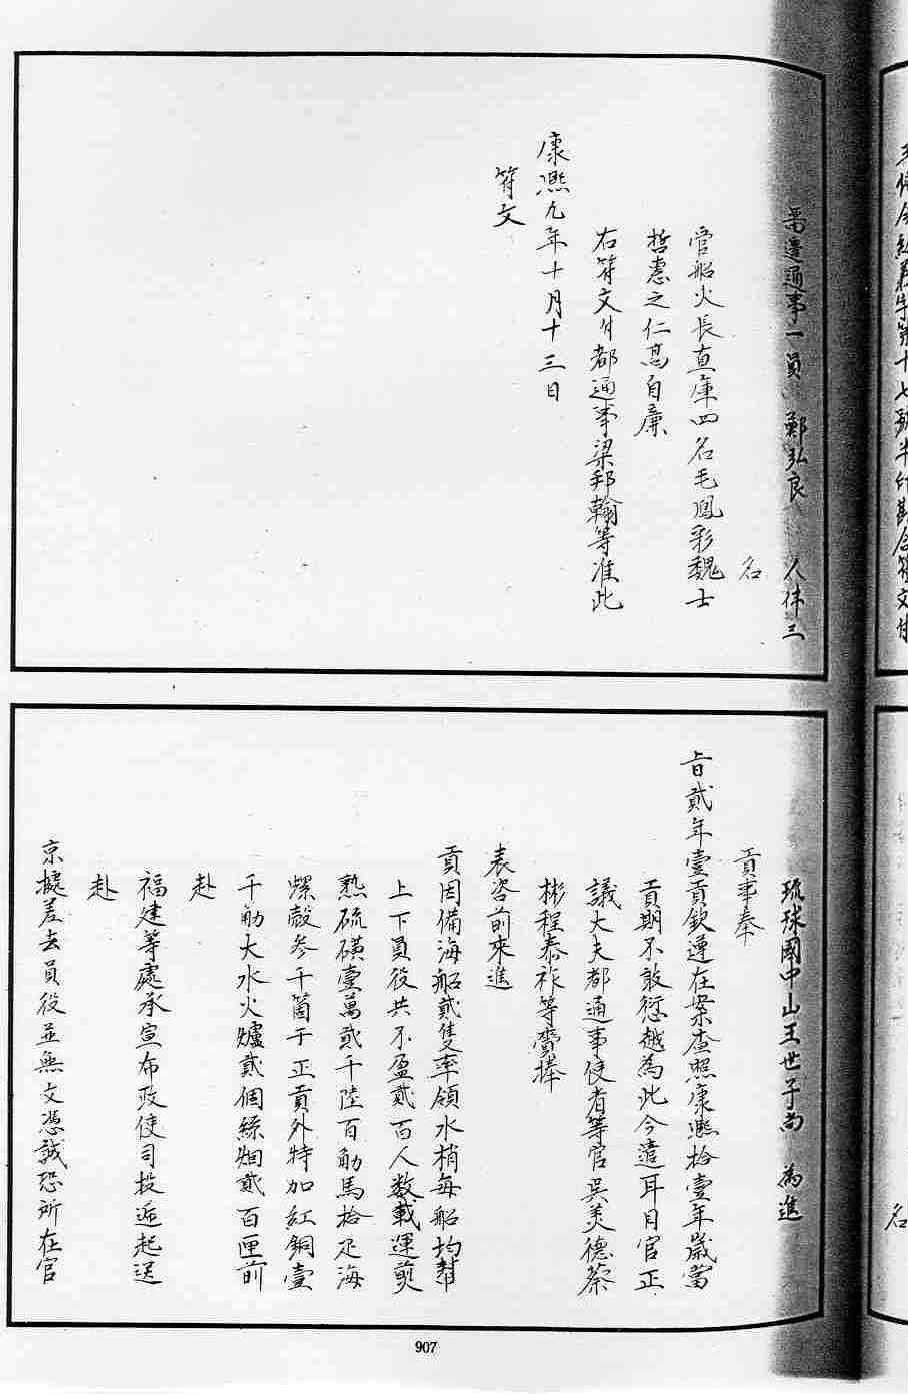 王府今給義字第十七號半印勘合符文付
名
留邊通事一員 鄭弘良 人伴三
名
管船火長直庫四名毛鳳彩魏士
哲憲之仁高自廉
右符文付都通事梁邦翰等准此
康熙九年十月十三日
符文
琉球國中山王世子尚 為進
貢事奉
旨貳年壹貢欽遵在案查照康熙拾壹年歲當
貢期不敢愆越為此今遣耳目官正
議大夫都通事使者等官吳美德蔡
彬程泰祚等齎捧
表咨前來進
貢因備海船貳隻率領水梢每船均幇
上下員役共不盈貳百人数載運煎
熟硫磺壹萬貳千陸百觔馬拾疋海
螺殼參千箇于正貢外特加紅銅壹
千觔大水火爐貳個絲烟貳百匣前
赴
福建等處承宣布政使司投逓起送
赴
京據差去員役並無文憑誠恐所在官
907